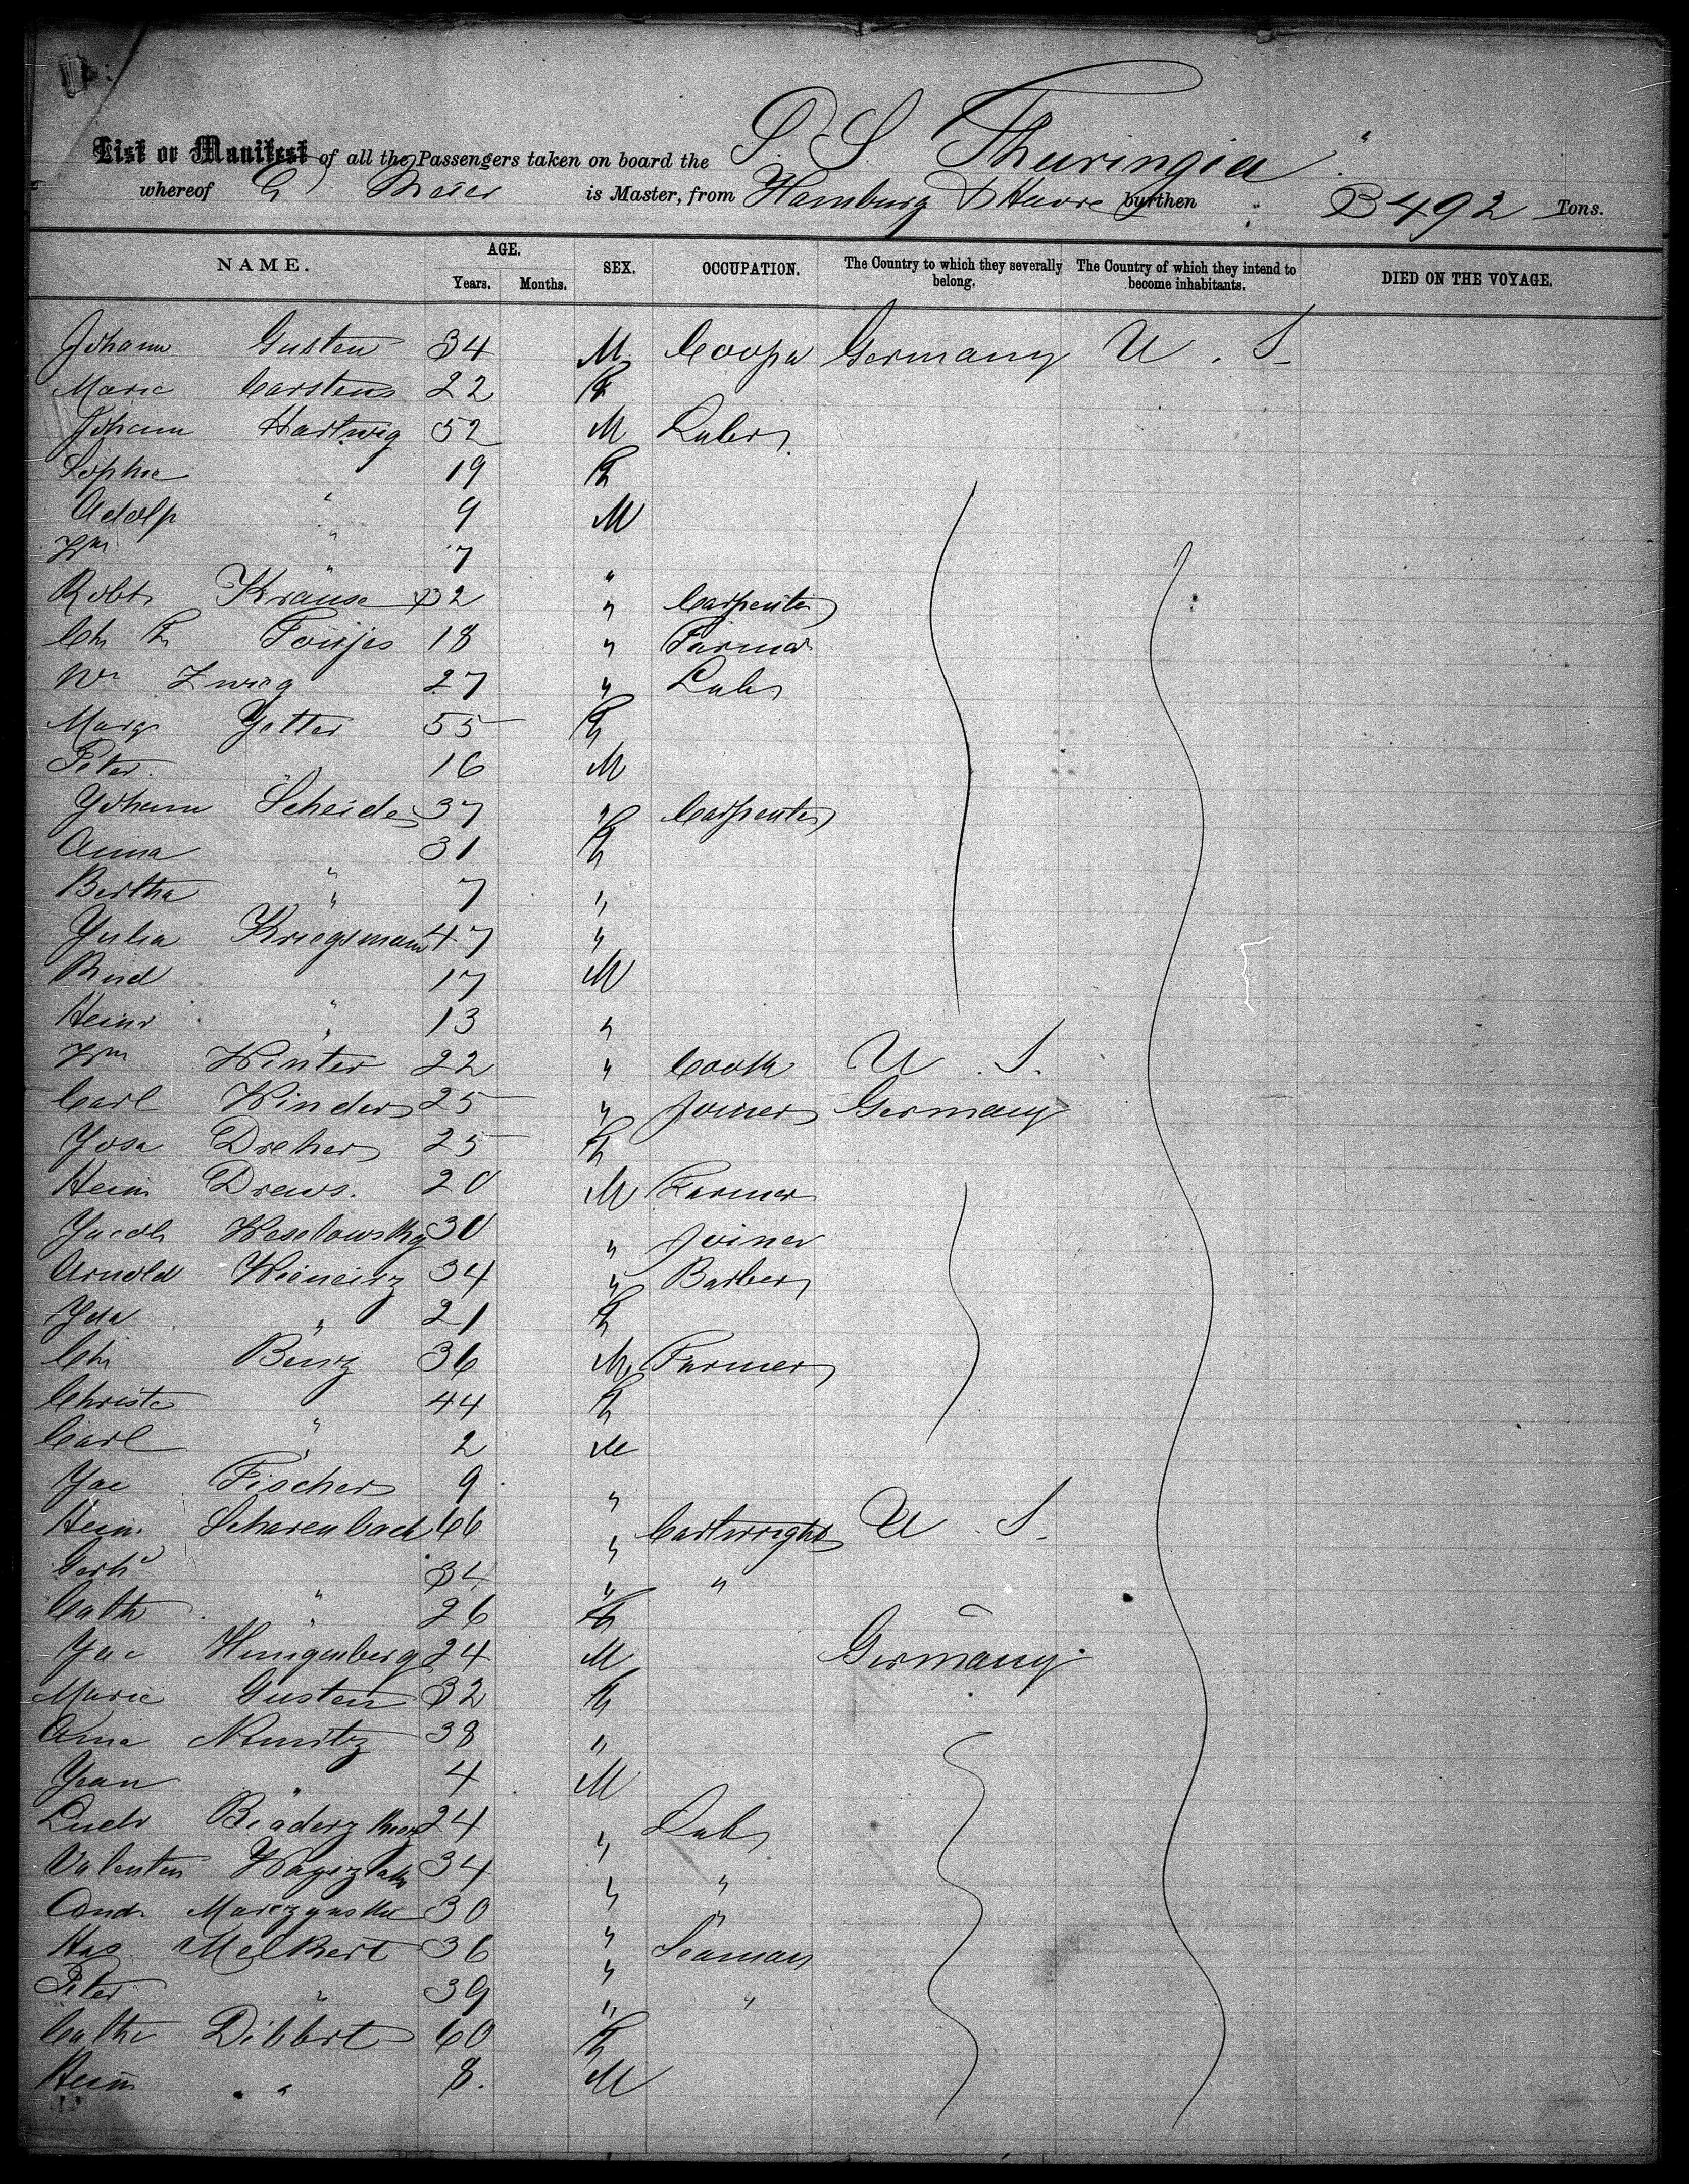 List or Manifest of all the Passengers taken on board the S. S. Thuringia
whereof G Meier is Master, from Hamburg & Havre burthen 3492 Tons.
NAME. AGE. Years. Months. SEX. OCCUPATION. The Country to which they severally belong. The Country of which they intend to become inhabitants. DIED ON THE VOYAGE.
Johann Gusten 34 M Coopr Germany U. S.
Marie Carstens 22 F
Johann Hartwig 52 M Labr
Sophie " 19 F
Adolf " 9 M
Wm " 7 "
Robt Krause 32 " Carpenter
Chr Fr Tonjes 18 " Farmer
Wm Zwieg 27 " Labr
Marg Yetter 55 F
Peter " 16 M
Johann Scheider 37 " Carpenter
Anna " 31 F
Bertha " 7 "
Julia Kriegsmann 47 "
Rud " 17 M
Heinr " 13 "
Wm Winter 22 " Cook U. S.
Carl Winders 25 " Joiner Germany
Josa Dreher 25 F
Heinr Drews. 20 M Farmer
Jacob Weselowsky 30 " Joiner
Arnold 34 " Barber
Ida " 21 F
Chr 36 M Farmer
Christe " 44 F
Carl " 2 M
Jac Fischer 9 "
Heinr Scharenbach 66 " Cartwright U. S.
Gerhd " 34 " "
Cath " 26 F
Jac Hungenberg 24 M Germany
Marie Gusten 32 F
Anna Nemitz 38 "
Jean " 4 M
Ludw 24 " Labr
Valentin 34 " "
Andr Marczynski 30 " "
Has Melkert 36 " Seaman
Peter " 39 " "
Cathr Dibbert 60 F
Heinr " 8. M